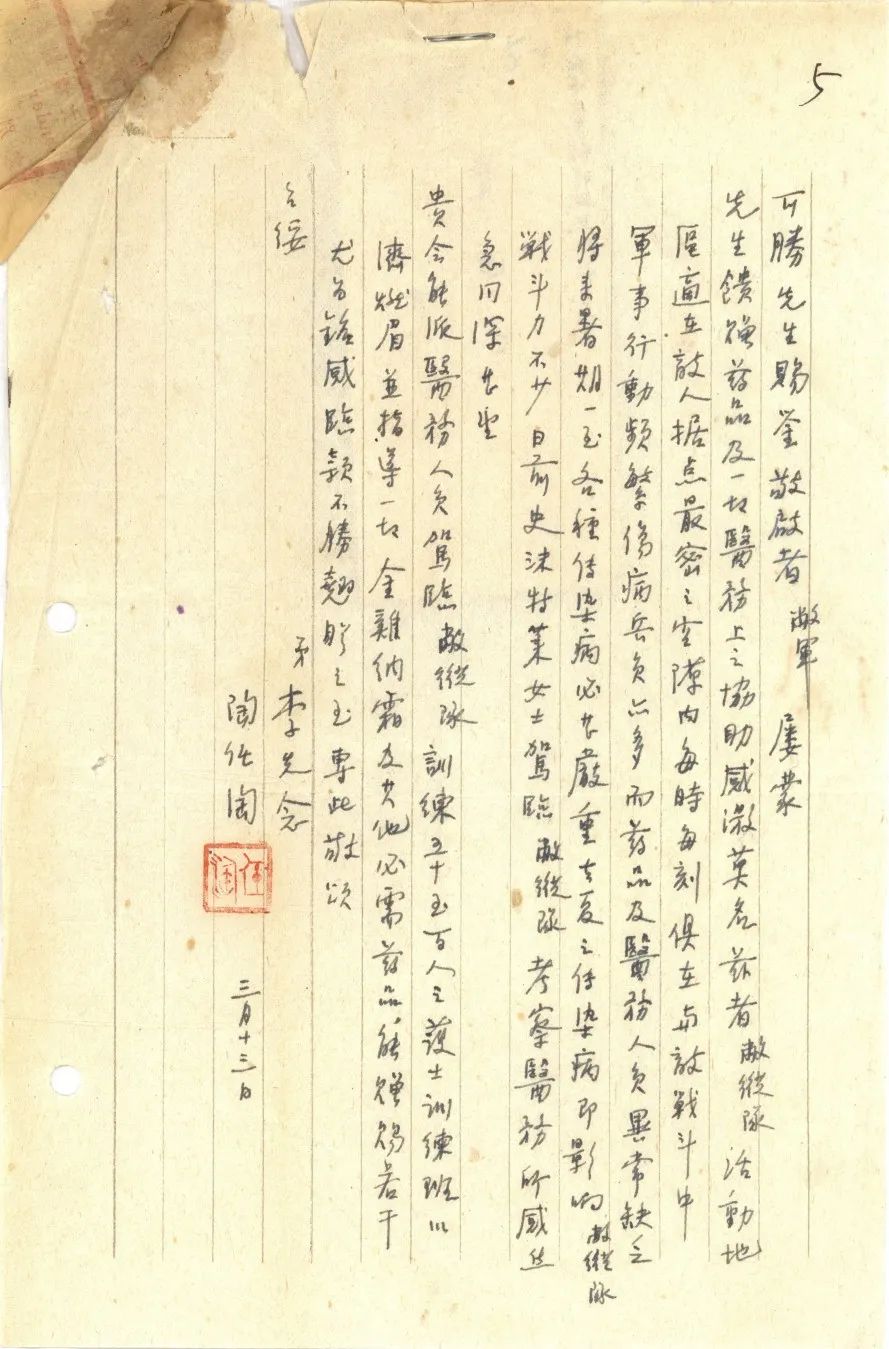 5
可勝先生賜鉴敬啟者敝軍屡蒙
先生饋贈葯品及一切醫務上之協助感激莫名兹者敝縱隊活動地
區逼在敵人据点最密之空隙内每時每刻俱在与敵戰斗中
軍事行動頻繁傷病兵負亦多而葯品及醫務人負異常缺乏
将来暑期一至各種传染病必甚嚴重去夏之传染病即影响敝縱隊
戰斗力不少日前史沫特萊女士駕臨敝縱隊考察醫務所感丝
急同深甚望
貴会能派醫務人负駕臨敝縱隊訓練五十至百人之護士訓練班以
濟燃眉並指導一切金雞納霜及其他必需葯品能贈賜若干
尤为銘感臨颖不勝翹盼之至專此敬頌
台綏
弟李先念
陶任陶
三月十三日